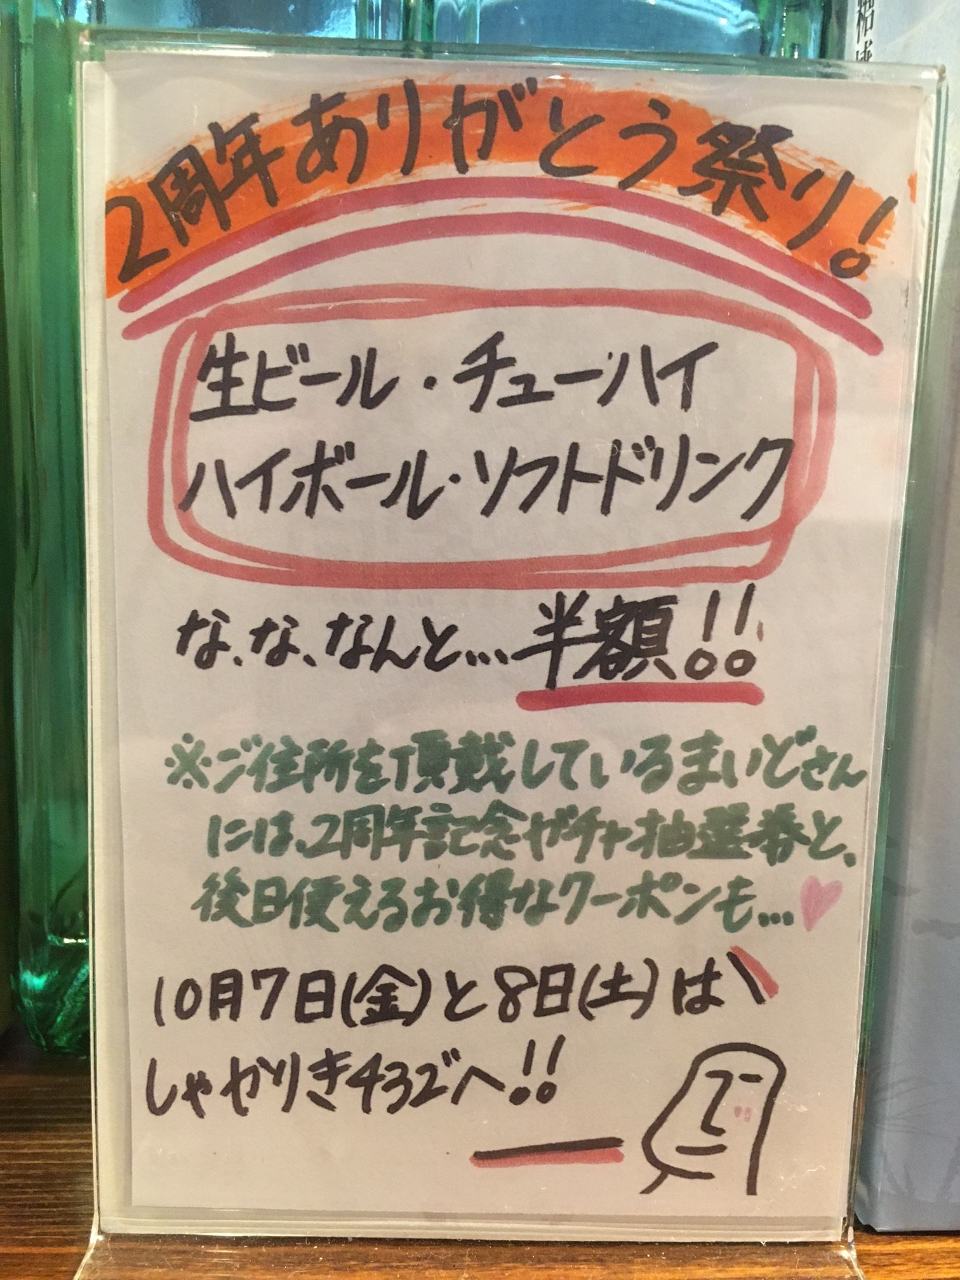 2周年ありがとう祭り!
生ビール・チューハイ
ハイボール・ソフトドリンク
な、な、なんと…半額!!
※ご住所を頂戴しているまいどさん
には、2周年記念ガチャ抽選券と、
後日使えるお得なクーポンも…
10月7日(金)と8日(土)は
しゃかりき432"へ!!